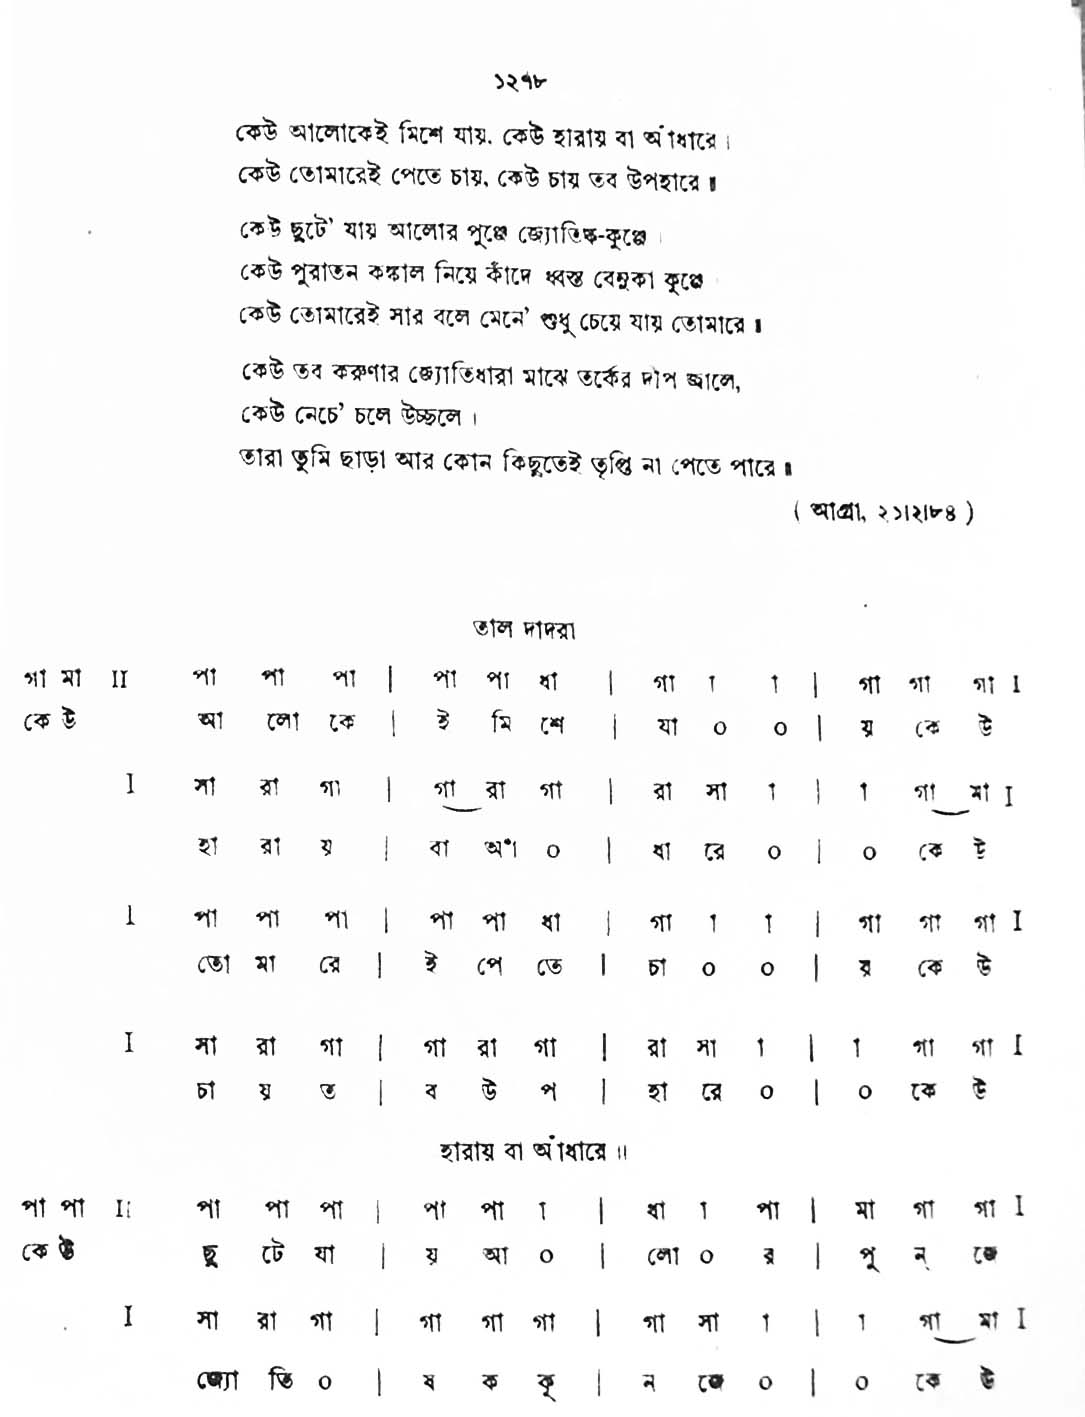 ১২৭৮
কেউ আলোকেই মিশে যায়, কেউ হারায় বা আঁধারে।
কেউ তোমারেই পেতে চায়, কেউ চায় তব উপহারে॥
কেউ ছুটে' যায় আলোর পুঞ্জে জ্যোতিষ্ক-কুঞ্জে।
কেউ পুরাতন কঙ্কাল নিয়ে কাঁদে ধ্বস্ত বেণুকা কুঞ্জে
কেউ তোমারেই সার বলে মেনে' শুধু চেয়ে যায় তোমারে॥
কেউ তব করুণার জ্যোতিধারা মাঝে তর্কের দীপ জ্বালে,
কেউ নেচে' চলে উচ্ছলে।
তারা তুমি ছাড়া আর কোন কিছুতেই তৃপ্তি না পেতে পারে॥
( আগ্রা, ২১।২।৮৪ )
তাল দাদরা
গা মা II পা পা পা | পা পা ধা | গা া া | গা গা গা I
কে উ আ লো কে | ই মি শে | যা ০ ০ | য় কে উ
I সা রা গা | গা রা গা | রা সা া | া গা মা I
হা রা য় | বা আঁ ০ | ধা রে ০ | ০ কে উ
I পা পা পা | পা পা ধা | গা া া | গা গা গা I
তো মা রে | ই পে তে | চা ০ ০ | য় কে উ
I সা রা গা | গা রা গা | রা সা া | া গা গা I
চা য় ত | ব উ প | হা রে ০ | ০ কে উ
হারায় বা আঁধারে॥
পা পা II পা পা পা | পা পা া | ধা া পা | মা গা গা I
কে উ ছু টে যা | য় আ ০ | লো ০ র | পু ন্ জে
I সা রা গা | গা গা গা | গা সা া | া গা মা I
জ্যো তি ০ | ষ ক কু | ন জে ০ | ০ কে উ